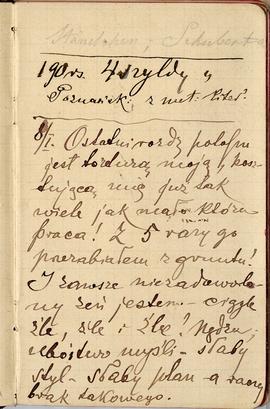 Ständchen; Schubert
190rs. 4 ryldy
Poznański z
8/I. Ostatni rozdz połogu
jest torturą moją, kosz-
tującą mię już tak
wiele jak mało która
praca! Z 5 razy go
przerabiałem z gruntu!
I zawsze niezadowolo-
ny zeń jestem - ciągle
źle, źle i źle! Nędzn,
ubóstwo myśli - słaby
styl - słaby plan - a raczej
brak takowego.